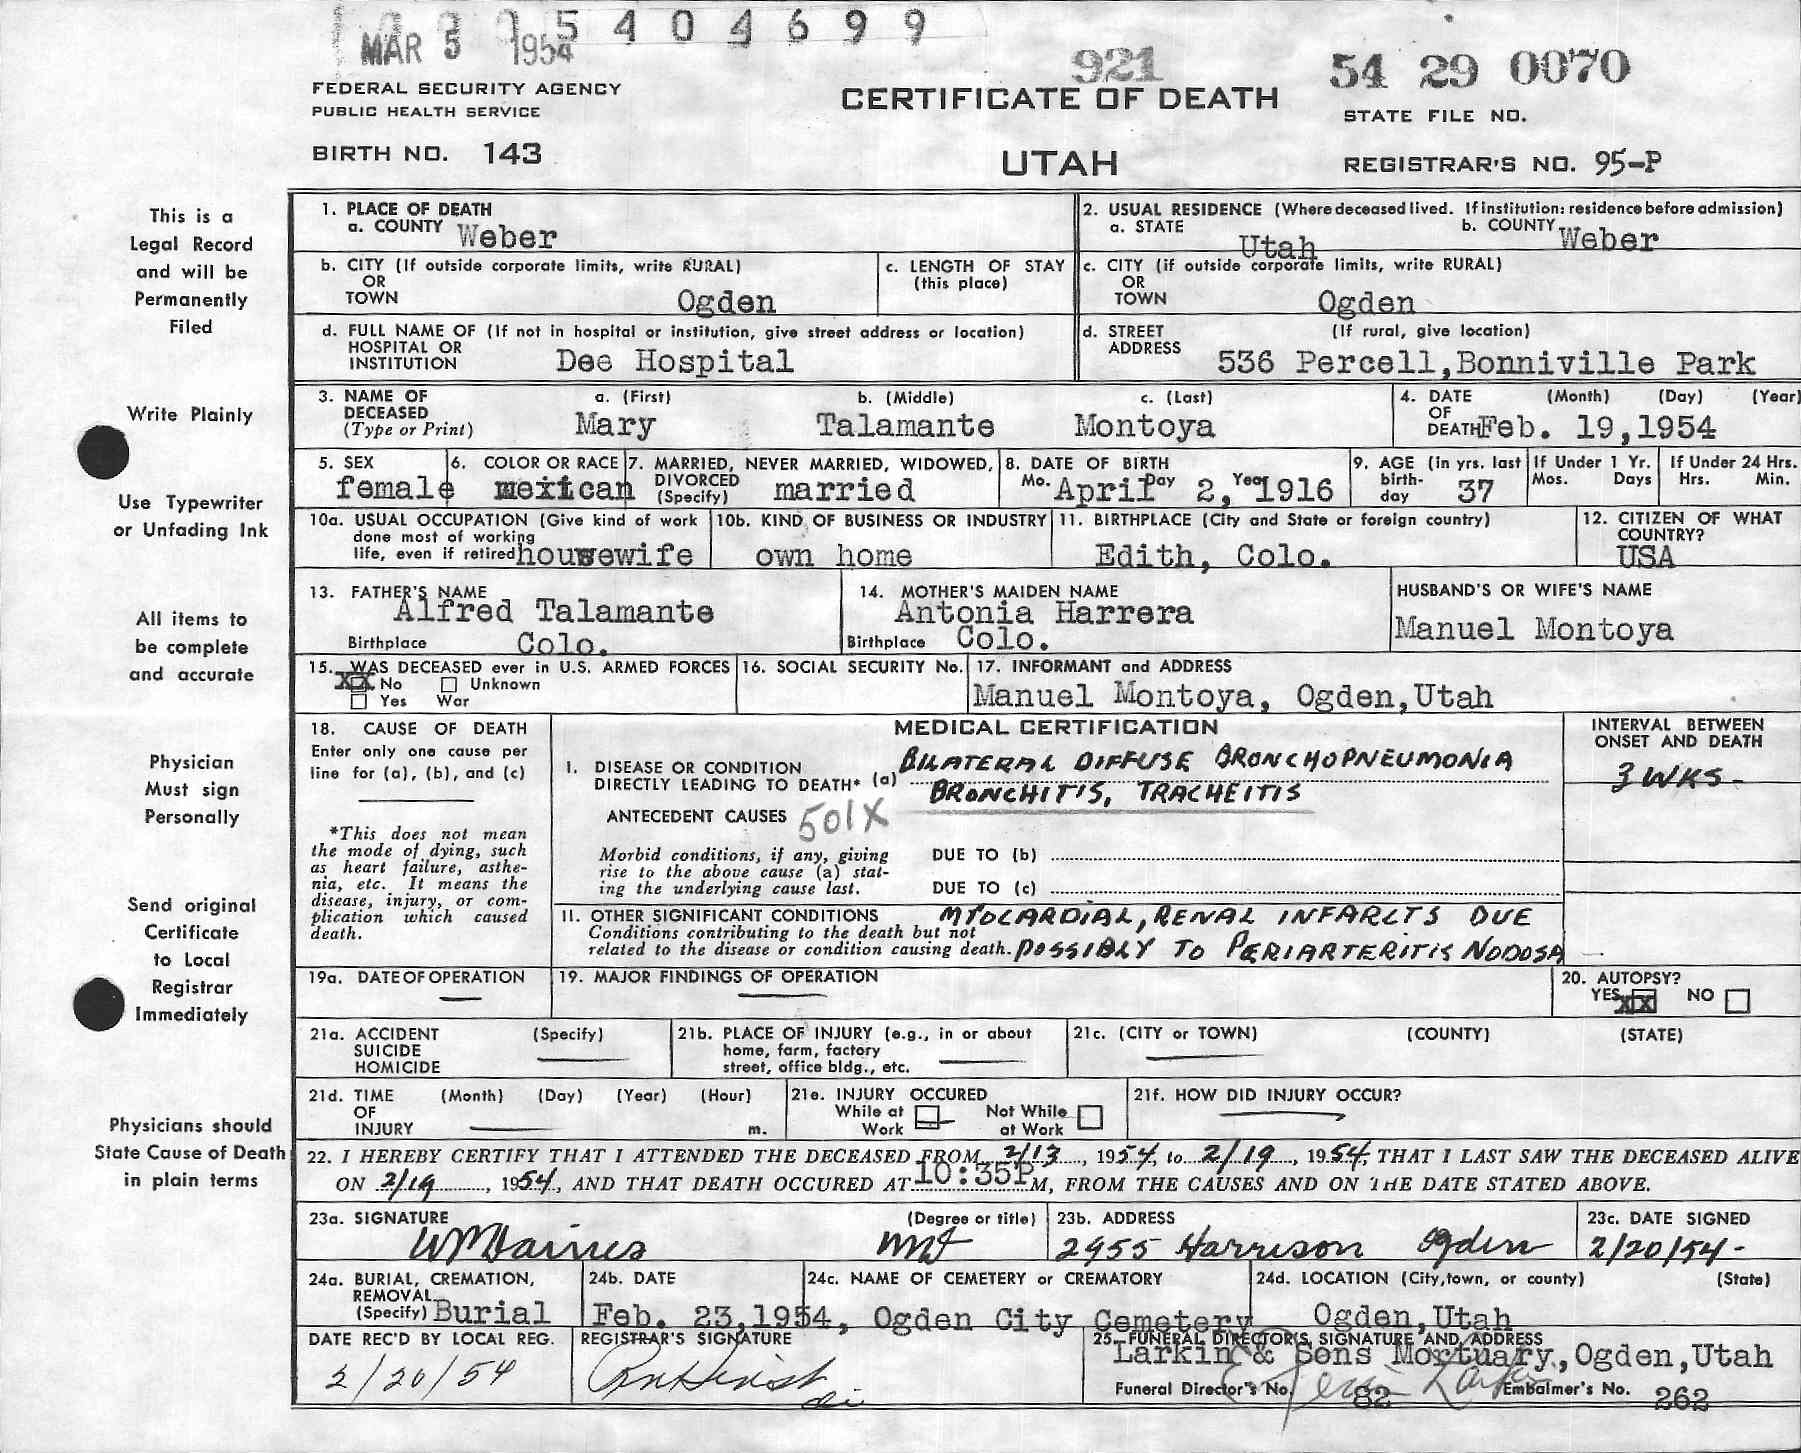 MAR 5 1954
5 4 0 4 6 9 9
921
54 29 0070
FEDERAL SECURITY AGENCY
PUBLIC HEALTH SERVICE
CERTIFICATE OF DEATH
STATE FILE NO.
BIRTH NO. 143
UTAH
REGISTRAR'S NO. 95-P
This is a
Legal Record
and will be
Permanently
Filed
Write Plainly
Use Typewriter
or Unfading Ink
All items to
be complete
and accurate
Physician
Must sign
Personally
Send original
Certificate
to Local
Registrar
Immediately
Physicians should
State Cause of Death
in plain terms
1. PLACE OF DEATH
a. COUNTY Weber
2. USUAL RESIDENCE (Where deceased lived. If institution: residence before admission)
a. STATE Utah b. COUNTY Weber
b. CITY (If outside corporate limits, write RURAL)
OR
TOWN Ogden
c. LENGTH OF STAY
(this place)
c. CITY (if outside corporate limits, write RURAL)
OR
TOWN Ogden
d. FULL NAME OF (If not in hospital or institution, give street address or location)
HOSPITAL OR
INSTITUTION Dee Hospital
d. STREET (If rural, give location)
ADDRESS 536 Percell,Bonniville Park
3. NAME OF DECEASED (Type or Print)
a. (First) b. (Middle) c. (Last)
Mary Talamante Montoya
4. DATE OF DEATH (Month) (Day) (Year)
Feb. 19,1954
5. SEX
female
6. COLOR OR RACE
mexican
7. MARRIED, NEVER MARRIED, WIDOWED,
DIVORCED
(Specify) married
8. DATE OF BIRTH
Mo. April Day 2, Year 1916
9. AGE (in yrs. last birth-day 37
If Under 1 Yr.
Mos. Days
If Under 24 Hrs.
Hrs. Min.
10a. USUAL OCCUPATION (Give kind of work
done most of working
life, even if retired housewife
10b. KIND OF BUSINESS OR INDUSTRY
own home
11. BIRTHPLACE (City and State or foreign country)
Edith, Colo.
12. CITIZEN OF WHAT
COUNTRY?
USA
13. FATHER'S NAME
Alfred Talamante
Birthplace Colo.
14. MOTHER'S MAIDEN NAME
Antonia Harrera
Birthplace Colo.
HUSBAND'S OR WIFE'S NAME
Manuel Montoya
15. WAS DECEASED ever in U.S. ARMED FORCES
XX No Unknown
Yes War
16. SOCIAL SECURITY No.
17. INFORMANT and ADDRESS
Manuel Montoya, Ogden,Utah
18. CAUSE OF DEATH
Enter only one cause per
line for (a), (b), and (c)
*This does not mean
the mode of dying, such
as heart failure, asthe-
nia, etc. It means the
disease, injury, or com-
plication which caused
death.
MEDICAL CERTIFICATION
INTERVAL BETWEEN
ONSET AND DEATH
I. DISEASE OR CONDITION
DIRECTLY LEADING TO DEATH* (a) BILATERAL DIFFUSE BRONCHOPNEUMONIA
BRONCHITIS, TRACHEITIS
3 WKS-
ANTECEDENT CAUSES 501X
Morbid conditions, if any, giving
rise to the above cause (a) stat-
ing the underlying cause last.
DUE TO (b)
DUE TO (c)
II. OTHER SIGNIFICANT CONDITIONS
Conditions contributing to the death but not
related to the disease or condition causing death.
MYOCARDIAL, RENAL INFARCTS DUE
POSSIBLY TO PERIARTERITIS NODOSA
19a. DATE OF OPERATION
19. MAJOR FINDINGS OF OPERATION
20. AUTOPSY?
YES XX NO
21a. ACCIDENT (Specify)
SUICIDE
HOMICIDE
21b. PLACE OF INJURY (e.g., in or about
home, farm, factory
street, office bldg., etc.
21c. (CITY or TOWN) (COUNTY) (STATE)
21d. TIME (Month) (Day) (Year) (Hour)
OF
INJURY m.
21e. INJURY OCCURED
While at Work
Not While at Work
21f. HOW DID INJURY OCCUR?
22. I HEREBY CERTIFY THAT I ATTENDED THE DECEASED FROM 2/13, 1954, to 2/19, 1954, THAT I LAST SAW THE DECEASED ALIVE
ON 2/19, 1954, AND THAT DEATH OCCURED AT 10:35P M, FROM THE CAUSES AND ON THE DATE STATED ABOVE.
23a. SIGNATURE (Degree or title)
WM Haines MD
23b. ADDRESS
2955 Harrison Ogden
23c. DATE SIGNED
2/20/54-
24a. BURIAL, CREMATION,
REMOVAL
(Specify) Burial
24b. DATE
Feb. 23,1954,
24c. NAME OF CEMETERY or CREMATORY
Ogden City Cemetery
24d. LOCATION (City,town, or county) (State)
Ogden,Utah
DATE REC'D BY LOCAL REG.
2/20/54
REGISTRAR'S SIGNATURE
25. FUNERAL DIRECTOR'S SIGNATURE AND ADDRESS
Larkin & Sons Mortuary, Ogden,Utah
Funeral Director's No. 82
Embalmer's No. 262